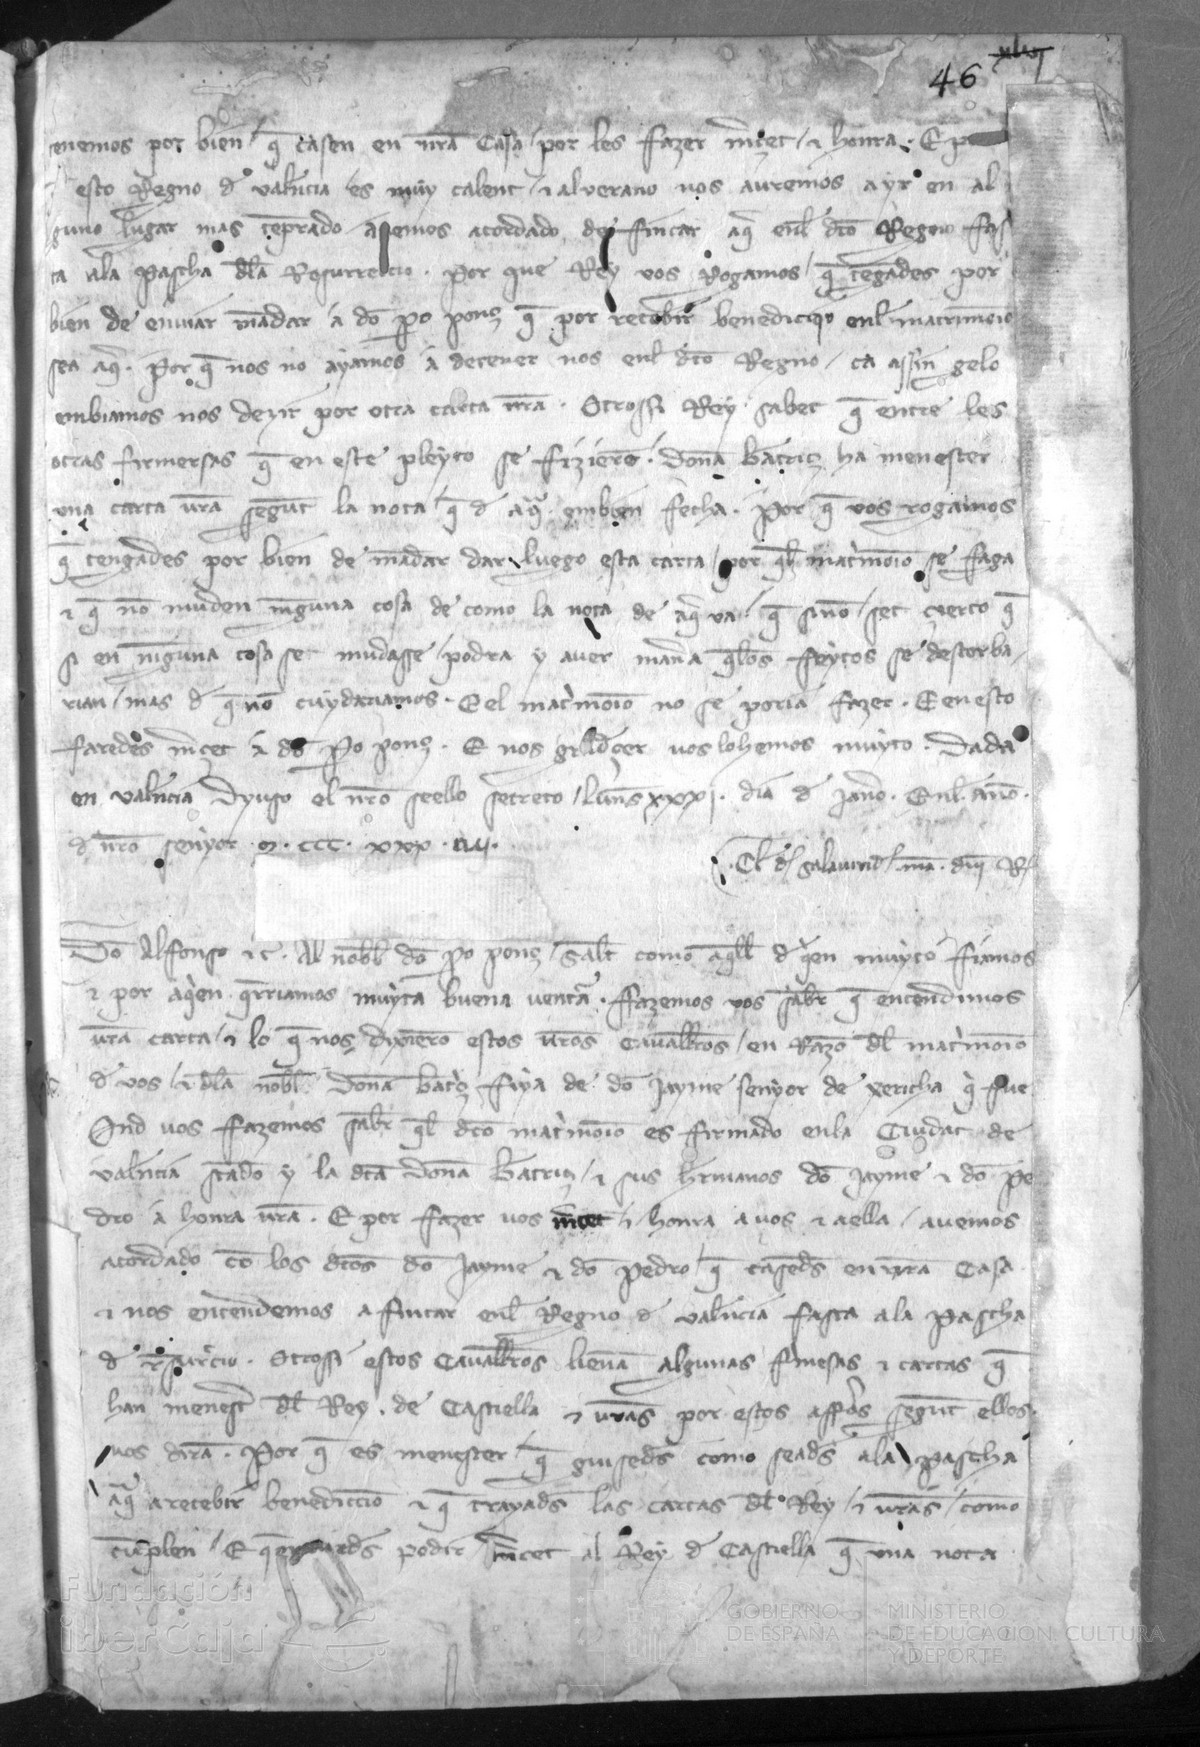 46 xlvj
tenemos por bien / q̄ casen en nr̄a Casa / por les fazer m̄cet / ⁊ honra. E p
esto Regno d̄ valēncia es muy calent / ⁊ al verano nos auremos a yr en al
guno lugar mas tēprado auemos acordado de fincar aq̄ enl̄ dc̄to Regno fas
ta ala Pascha dl̄a Resurreccio. Por que Rey vos Rogamos / q̄ tengades por
bien de enuiar mādar a dō Po ponç q̄ por recebir benediccio enl̄ matrimonio
sea aq̄. Por q̄ nos no ayamos a detener nos enl̄ dc̄to Regno / ca assin gelo
embiamos nos dezir por otra carta nr̄a. Otrossi Rey sabet q̄ entre les
otras firmersas q̄ en este pleyto se fizierō. Dona Batriç ha menester
una carta vr̄a segūt la nota / q̄ d̄ aq̄ embien fecha. Por q̄ vos rogamos
q̄ tengades por bien de mādar dar luego esta carta / por ql̄ mat'monio se faga
⁊ q̄ nō muden nīguna cosa de como la nota de aq̄ va. q̄ sinō / set cierto q̄
si en nīguna cosa se mudasse / podra y auer man̄a ql̄os feytos se destorba
rian / mas d̄ q̄ nō cuydariamos. E el mat'monio no se poria fazer. E en esto
faredes m̄cet a dō Po ponç. E nos gradeçer vos lo hemos muyto. Dada
en valēncia Dyuso el nr̄o seello secreto / lūns xxxj. dia d̄ Janō. Enl̄ anō.
d̄ nr̄o senyor .M. CCC. xxx.
Dō Alfonso ⁊c̄. Al nobl̄ dō Po ponç Salt̄ como aq̄ll d̄ q'en muyto fiamos
⁊ por aq'en qr̄riamos muyta buena ventā. Fazemos vos sab̄r q̄ entendimos
vr̄a carta / ⁊ lo q̄ nos dixierō estos vr̄os Cauall̄ros / en Razō dl̄ mat'monio
d̄ vos / ⁊ dl̄a nobl̄ Dona bat'ç fiya de dō Jayme senyor de xericha q' fue
Ond vos fazemos sab̄r ql̄ dc̄to mat'monio es firmado en la Ciudat de
valēncia stādo y la dc̄ta Dona Batriç / ⁊ sus h̄rmanos dō Jayme ⁊ dō Pe
dro a honra vr̄a. E por fazer vos m̄cet ⁊ honra a vos ⁊ a ella / auemos
acordado cō los dc̄tos dō Jayme ⁊ dō Pedro / q̄ casedes en nr̄a Casa
⁊ nos entendemos a fincar enl̄ Regno d̄ valēncia fasta ala Pascha
d̄ Resur'ctio. Otrossi estos Cauall̄ros lieuā algunas fmesas ⁊ cartas q̄
han menest̄ dl̄ Rey de Castiella ⁊ vr̄as por estos aff̄os segūt ellos
vos dirā. Por q̄ es menester / q̄ guisedes como seades ala Pascha
aq̄ a recebir benediccio ⁊ q̄ trayades las cartas dl̄ Rey / ⁊ vr̄as / como
cūplen / E podir m̄cet al Rey d̄ Castiella q̄ una nota
Fundación
iberCaja
GOBIERNO
DE ESPAÑA
MINISTERIO
DE EDUCACIÓN, CULTURA
Y DEPORTE